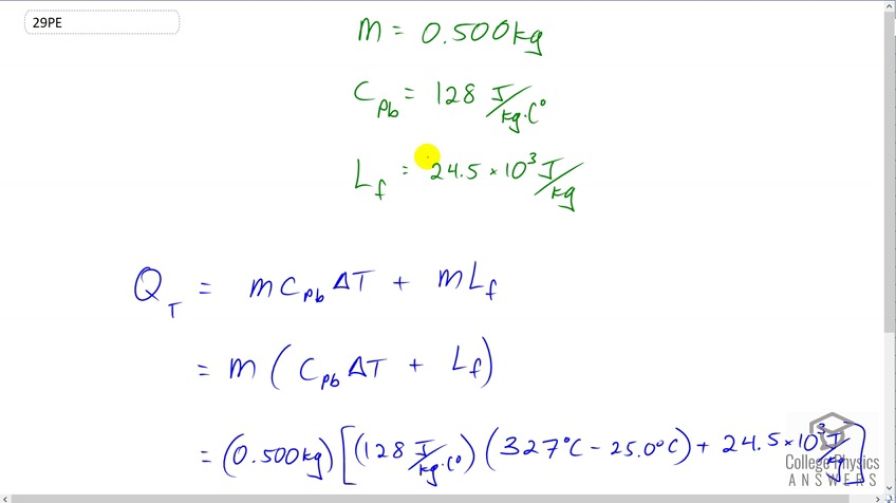 29PE
m = 0.500 kg
C_Pb = 128 J/kg·C°
L_f = 24.5 × 10³ J/kg
Q_T = m C_Pb ΔT + m L_f
= m ( C_Pb ΔT + L_f )
= (0.500 kg) [ (128 J/kg·C°) ( 327°C − 25.0°C) + 24.5 × 10³ J/kg ]
College Physics
ANSWERS